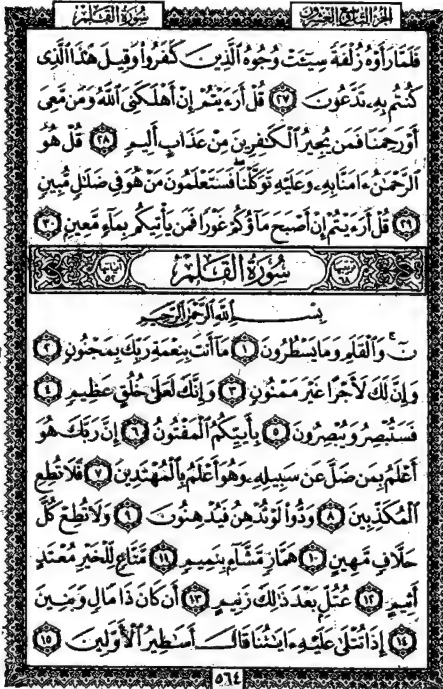 سُورَةُ القَلَمِ الجزء التاسع والعشرون
فَلَمَّا رَأَوْهُ زُلْفَةً سِيٓـَٔتْ وُجُوهُ ٱلَّذِينَ كَفَرُوا۟ وَقِيلَ هَٰذَا ٱلَّذِى
كُنتُم بِهِۦ تَدَّعُونَ ٢٧ قُلْ أَرَءَيْتُمْ إِنْ أَهْلَكَنِىَ ٱللَّهُ وَمَن مَّعِىَ
أَوْ رَحِمَنَا فَمَن يُجِيرُ ٱلْكَٰفِرِينَ مِنْ عَذَابٍ أَلِيمٍ ٢٨ قُلْ هُوَ
ٱلرَّحْمَٰنُ ءَامَنَّا بِهِۦ وَعَلَيْهِ تَوَكَّلْنَا فَسَتَعْلَمُونَ مَنْ هُوَ فِى ضَلَٰلٍ مُّبِينٍ
٢٩ قُلْ أَرَءَيْتُمْ إِنْ أَصْبَحَ مَآؤُكُمْ غَوْرًا فَمَن يَأْتِيكُم بِمَآءٍ مَّعِينٍۭ ٣٠
ترتيبها ٦٨ سُورَةُ القَلَمِ آياتها ٥٢
بِسْمِ ٱللَّهِ ٱلرَّحْمَٰنِ ٱلرَّحِيمِ
نٓ ۚ وَٱلْقَلَمِ وَمَا يَسْطُرُونَ ١ مَآ أَنتَ بِنِعْمَةِ رَبِّكَ بِمَجْنُونٍ ٢
وَإِنَّ لَكَ لَأَجْرًا غَيْرَ مَمْنُونٍ ٣ وَإِنَّكَ لَعَلَىٰ خُلُقٍ عَظِيمٍ ٤
فَسَتُبْصِرُ وَيُبْصِرُونَ ٥ بِأَييِّكُمُ ٱلْمَفْتُونُ ٦ إِنَّ رَبَّكَ هُوَ
أَعْلَمُ بِمَن ضَلَّ عَن سَبِيلِهِۦ وَهُوَ أَعْلَمُ بِٱلْمُهْتَدِينَ ٧ فَلَا تُطِعِ
ٱلْمُكَذِّبِينَ ٨ وَدُّوا۟ لَوْ تُدْهِنُ فَيُدْهِنُونَ ٩ وَلَا تُطِعْ كُلَّ
حَلَّافٍ مَّهِينٍ ١٠ هَمَّازٍ مَّشَّآءٍۭ بِنَمِيمٍ ١١ مَّنَّاعٍ لِّلْخَيْرِ مُعْتَدٍ
أَثِيمٍ ١٢ عُتُلٍّۭ بَعْدَ ذَٰلِكَ زَنِيمٍ ١٣ أَن كَانَ ذَا مَالٍ وَبَنِينَ
١٤ إِذَا تُتْلَىٰ عَلَيْهِ ءَايَٰتُنَا قَالَ أَسَٰطِيرُ ٱلْأَوَّلِينَ ١٥
٥٦٤